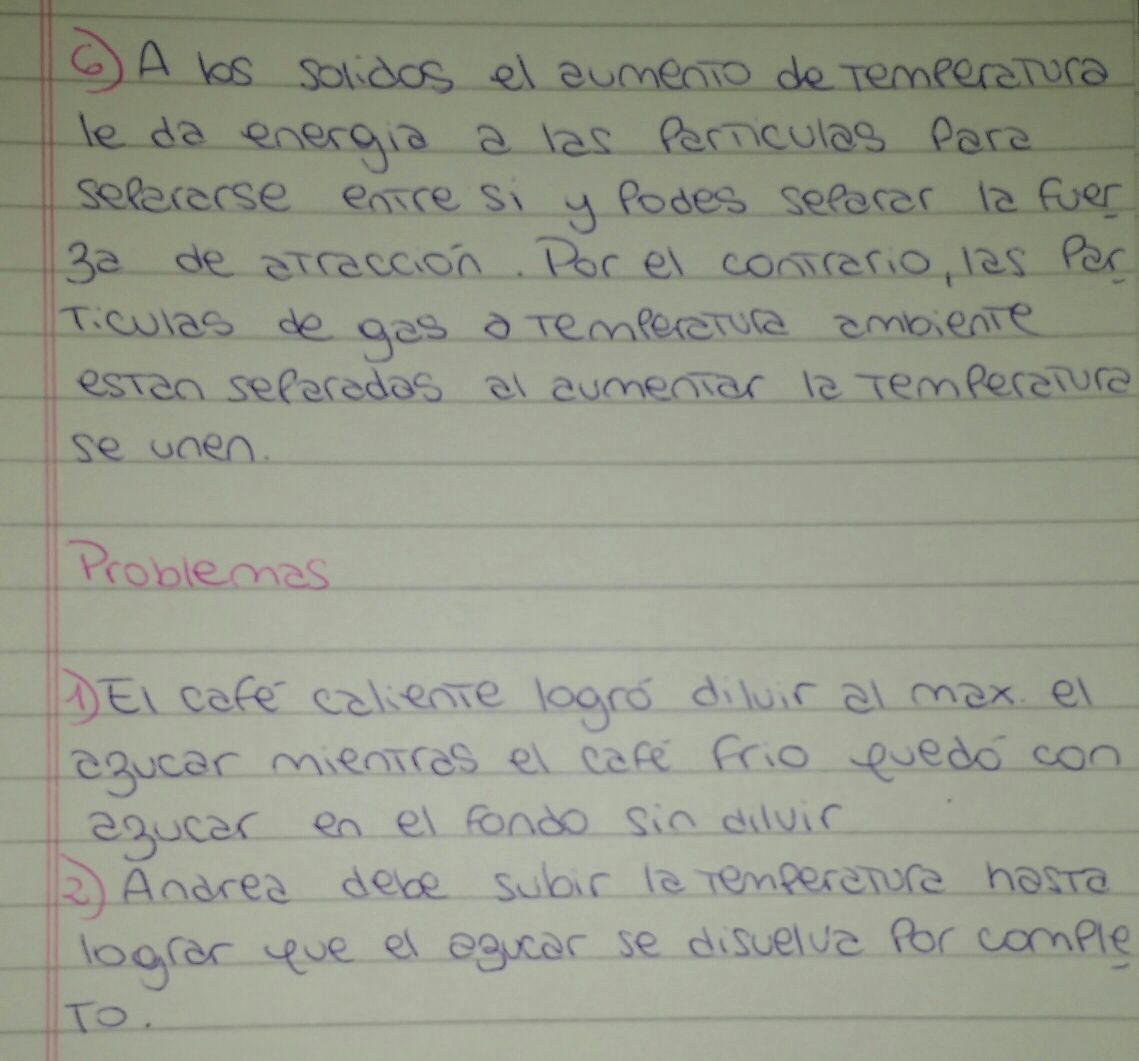 6) A los solidos el aumento de temperatura
le da energia a las particulas para
separarse entre si y podes separar la fuer
za de atracción. Por el contrario, las par
ticulas de gas a temperatura ambiente
estan separadas al aumentar la temperatura
se unen.
Problemas
1) El café caliente logró diluir al max. el
azucar mientras el café frio quedó con
azucar en el fondo sin diluir
2) Andrea debe subir la temperatura hasta
lograr que el azucar se disuelva por comple
to.